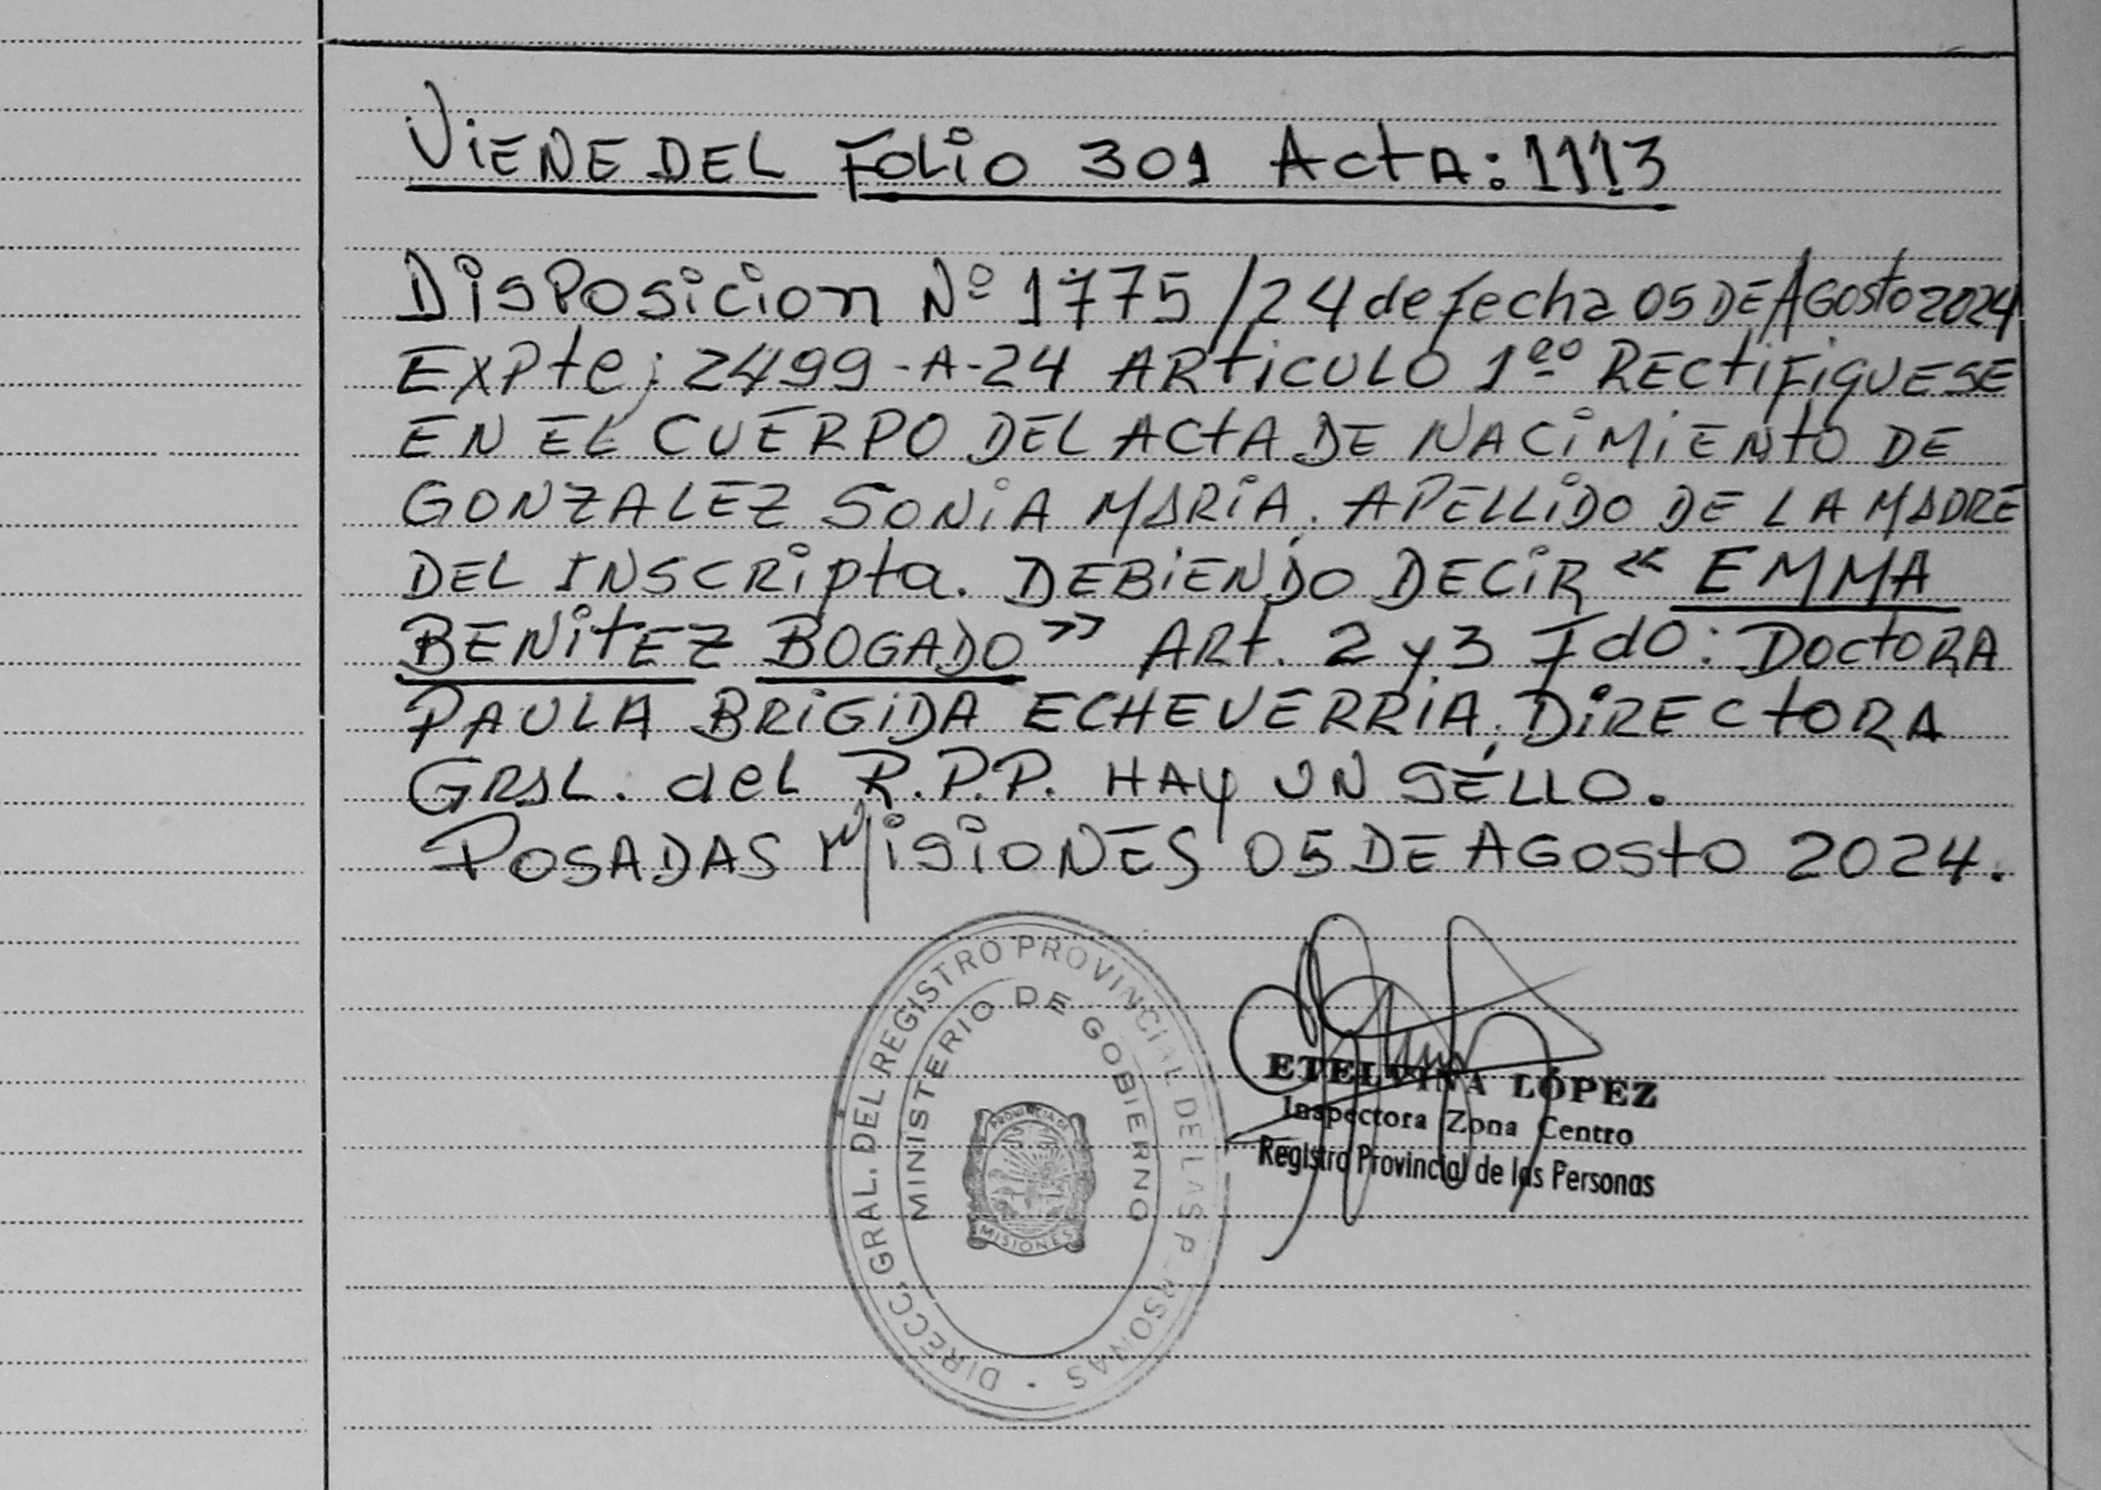 VIENE DEL FOLIO 301 ActA: 1113
DisPosicion Nº 1775/24 de fecha 05 DE AGosto 2024
EXPte; 2499-A-24 ARtiCULO 1ºº RECtiFiQUESE
EN EL CUERPO DEL ACtA DE NACiMiENtO DE
GONZALEZ SONiA MARiA. APELLiDO DE LA MADRE
DEL INSCRipta. DEBiENDO DECiR « EMMA
BENitEZ BOGADO » ARt. 2 y 3 FdO: DOCtORA
PAULA BRiGiDA ECHEVERRiA, DiRECtORA
GRAL. del R.P.P. HAY UN SELLO.
POSADAS MiSiONES 05 DE AGOSTO 2024.
DIRECC. GRAL. DEL REGISTRO PROVINCIAL DE LAS P RSONAS
MINISTERIO DE GOBIERNO
PROVINCIA DE
MISIONES
ETELVINA LÓPEZ
Inspectora Zona Centro
Registro Provincial de las Personas